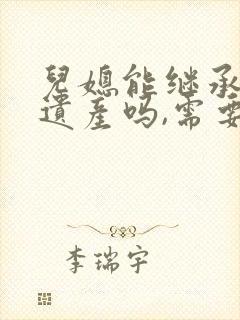 兒媳能继承
遗産吗,需要
李瑞宇